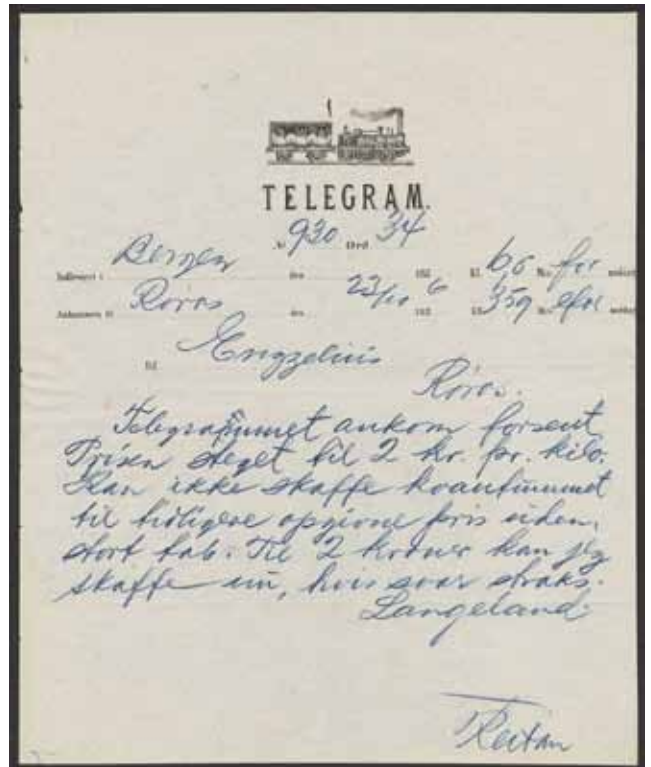 TELEGRAM.
Nr 930 Ord 34
Indleveret i Bergen den 191 Kl. 6,5 M. for middag
Ankommen til Röros den 23/10 1916 Kl. 359 M. efter middag
Til Engzelius
Röros.
Telegrammet ankom forsent
Prisen steget til 2 kr. pr. kilo.
Kan ikke skaffe kvantummet
til tidligere opgivne pris uden
stort tab. Til 2 kroner kan jeg
skaffe nu, hvis svar straks.
Langeland.
Reitan